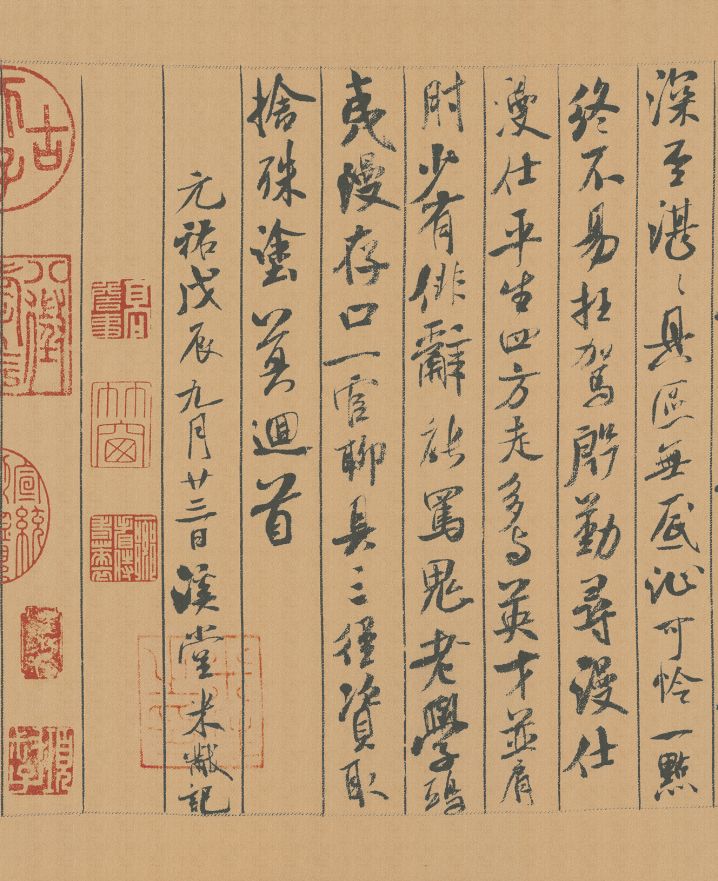 深至湛〻具區無底沚可憐一點
終不易枉駕殷勤尋漫仕
漫仕平生四方走多与英才並肩
肘少有俳辭能罵鬼老學鴟
夷漫存口一官聊具三徑資取
捨殊塗莫迴首
元祐戊辰九月廿三日溪堂米黻記
竹窗